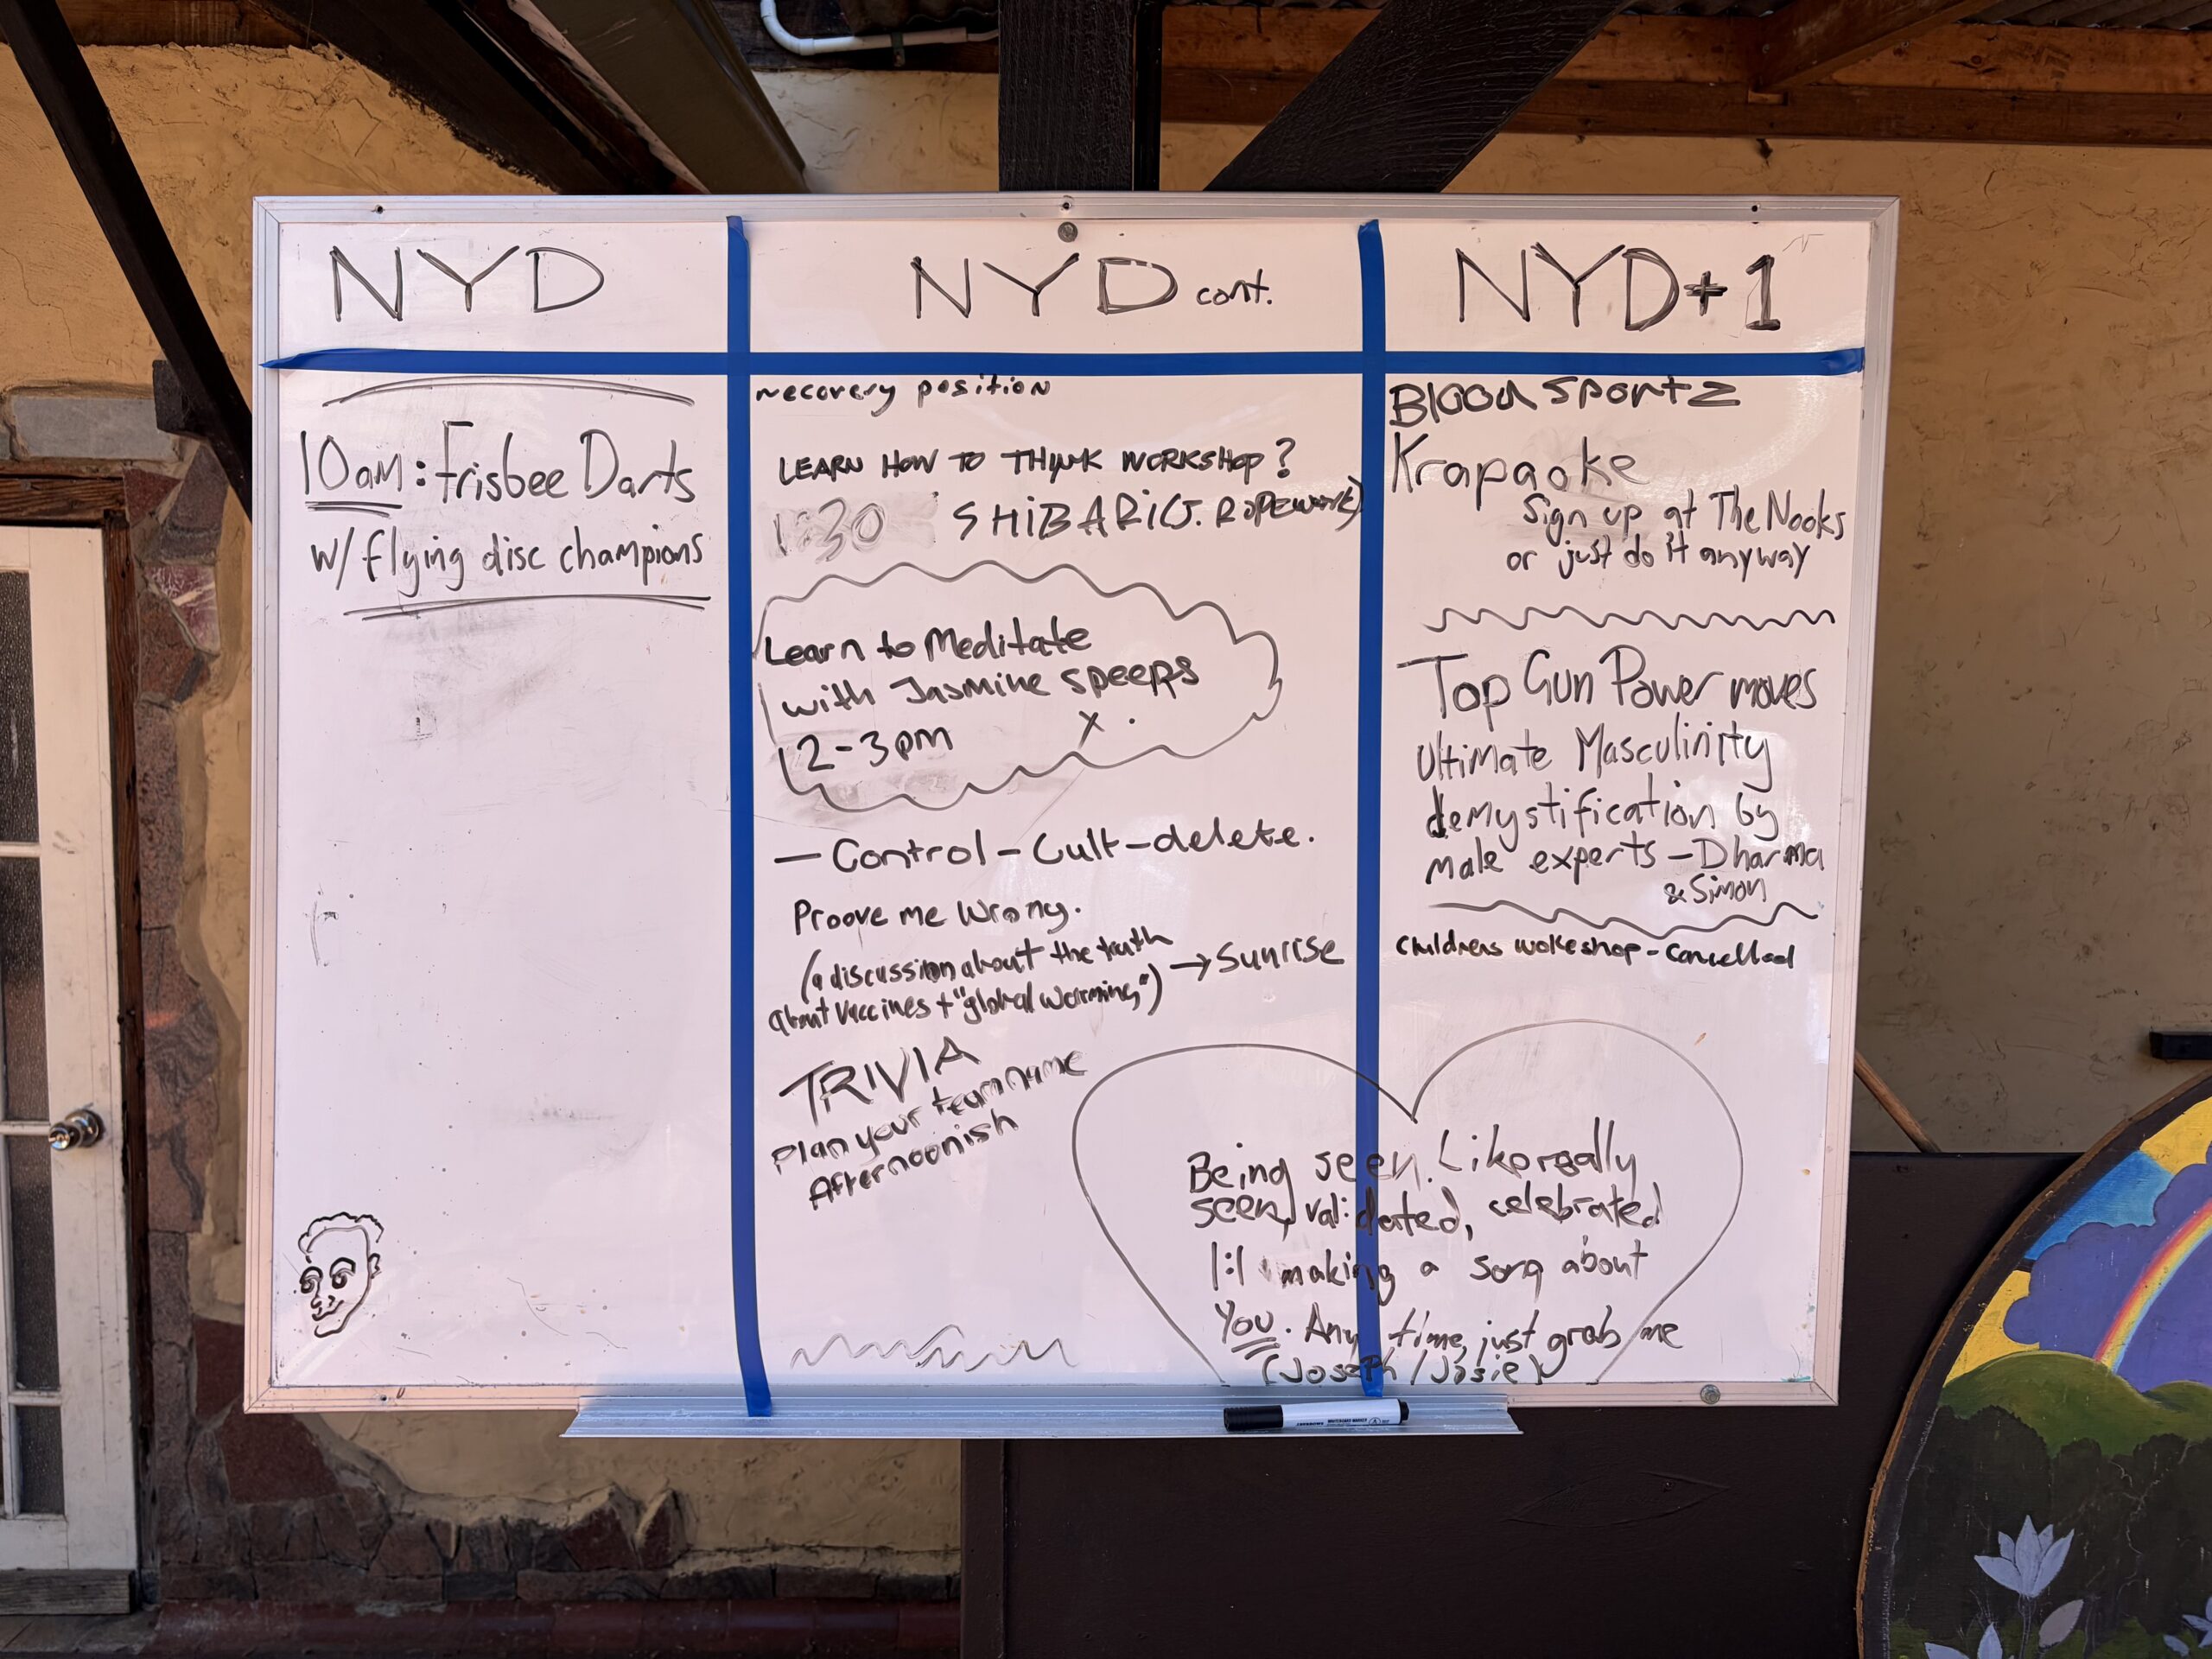 NYD
10am: Frisbee Darts
w/ flying disc champions
NYD cont.
recovery position
LEARN HOW TO THINK WORKSHOP?
1:30 SHIBARI (J. ROPEWORK)
Learn to Meditate
with Jasmine speeps
2-3pm x.
— Control - Cult - delete.
Proove me wrong.
(a discussion about the truth
about vaccines + "global worming") → Sunrise
TRIVIA
Plan your team name
Afternoonish
NYD+1
Blood Sportz
Krapaoke
Sign up at The Nooks
or just do it anyway
Top Gun Power moves
Ultimate Masculinity
demystification by
male experts - Dharma
& Simon
Childrens wokeshop - Cancelled
Being seen. Like really
seen, validated, celebrated
1:1 making a song about
You. Any time, just grab me
(Joseph / Josie)
WHITEBOARD MARKER